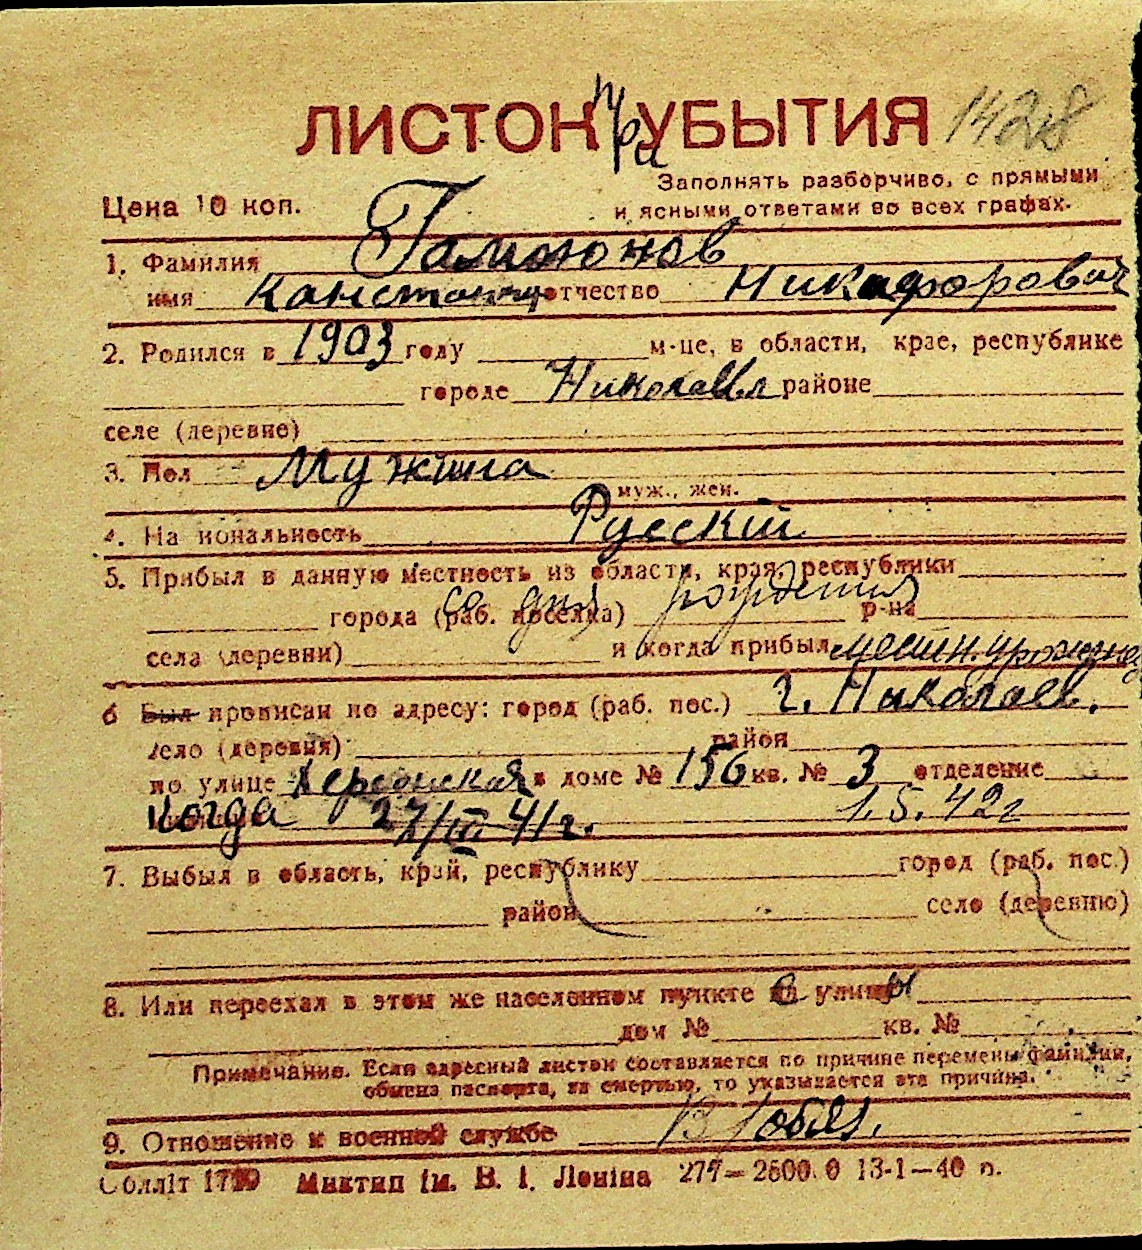 ЛИСТОК при УБЫТИЯ 1428
Заполнять разборчиво, с прямыми
Цена 10 коп. и ясными ответами во всех графах.
1. Фамилия
имя Константин отчество Никифорович
2. Родился в 1903 году м-це, в области, крае, республике
городе Николаев районе
селе (деревне)
3. Пол Мужчина
муж., жен.
4. Национальность Русскій
5. Прибыл в данную местность из области, края, республики
города (раб. поселка) со дня рождения р-на
села (деревни) и когда прибыл местн. уроженец
6 Был прописан по адресу: город (раб. пос.) г. Николаев.
село (деревня) район
по улице Херсонская в доме № 156 кв. № 3 отделение
когда 27/III 41 г. 1.5.42 г
7. Выбыл в область, край, республику город (раб. пос.)
район село (деревню)
8. Или переехал в этом же населенном пункте с улицы
дом № кв. №
Примечание. Если адресный листок составляется по причине перемены фамилии,
обмена паспорта, за смертью, то указывается эта причина.
9. Отношение к военной службе
Обллiт Миктип iм. В. І. Ленiна 277—2600.0 13-1—40 п.